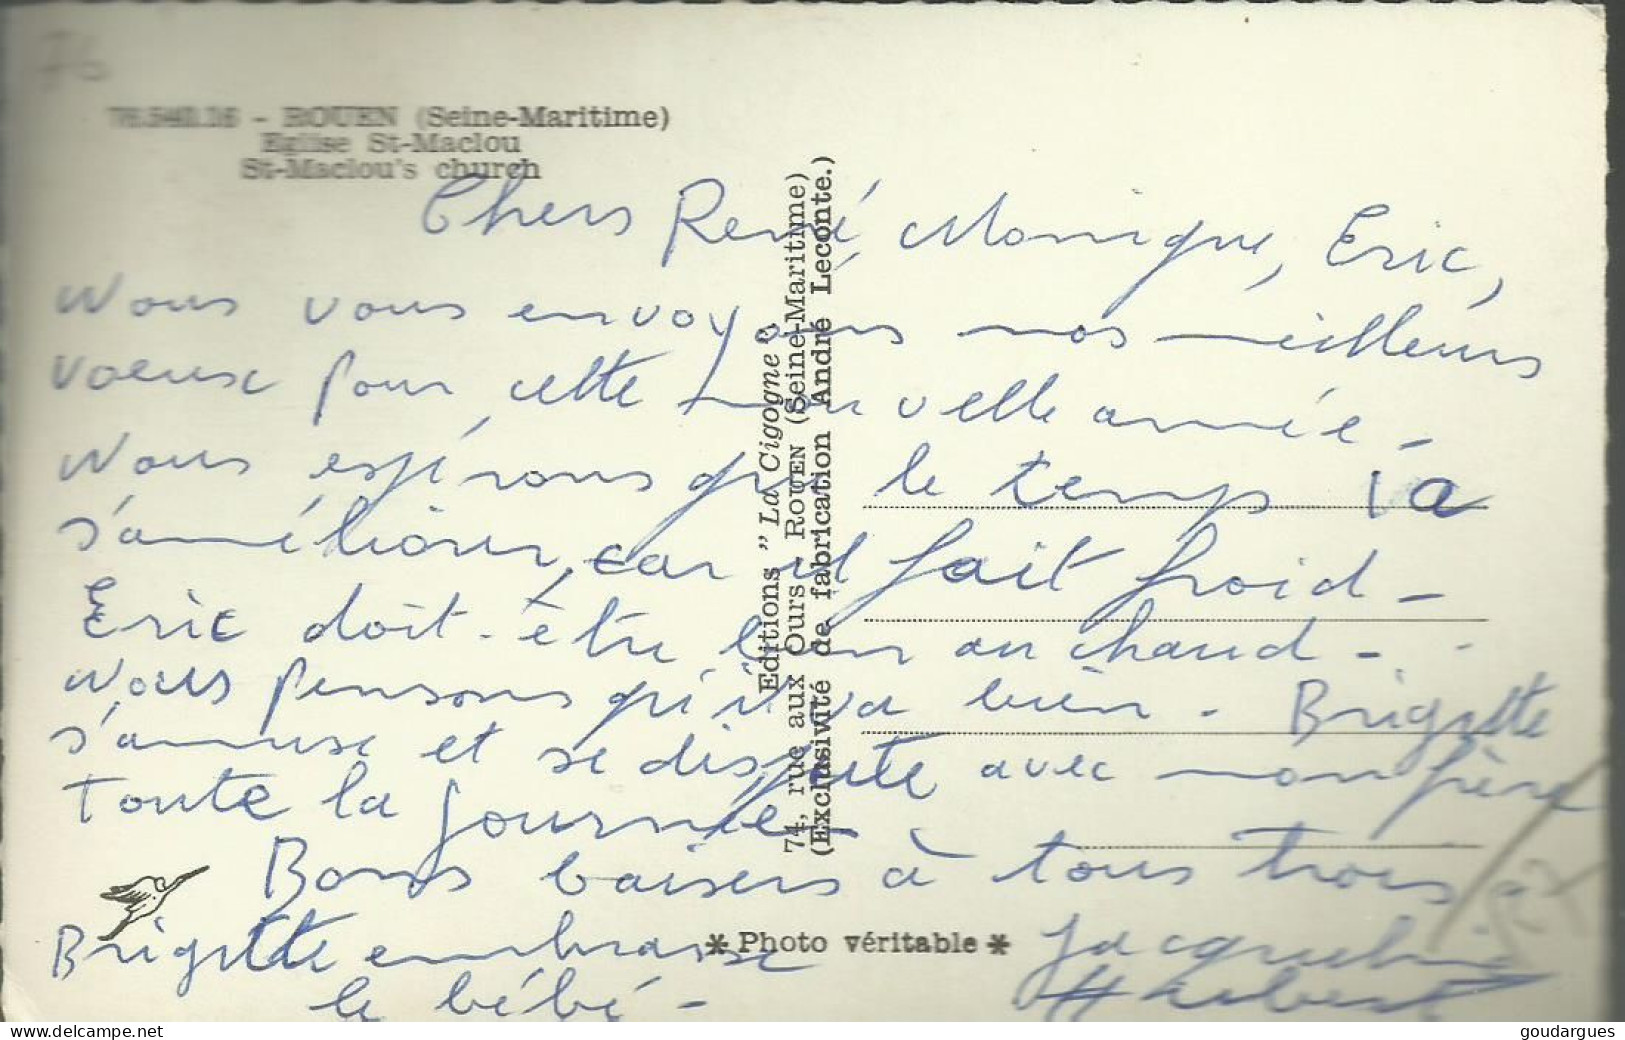 76
76.540.16 - ROUEN (Seine-Maritime)
Eglise St-Maclou
St-Maclou's church
Chers René, Monique, Eric,
Nous vous envoyons nos meilleurs
voeux pour cette nouvelle année -
Nous espérons que le temps va
s'améliorer, car il fait froid -
Eric doit-être bien au chaud -
Nous pensons qu'il va bien - Brigitte
s'amuse et se dispute avec mon père
Toute la journée -
Bons baisers à tous trois -
Brigitte embrasse
le bébé -
Jacqueline
Hubert
Editions " La Cigogne "
74, rue aux Ours - ROUEN (Seine-Maritime)
(Exclusivité de fabrication André Leconte.)
* Photo véritable *
delcampe.net
goudargues